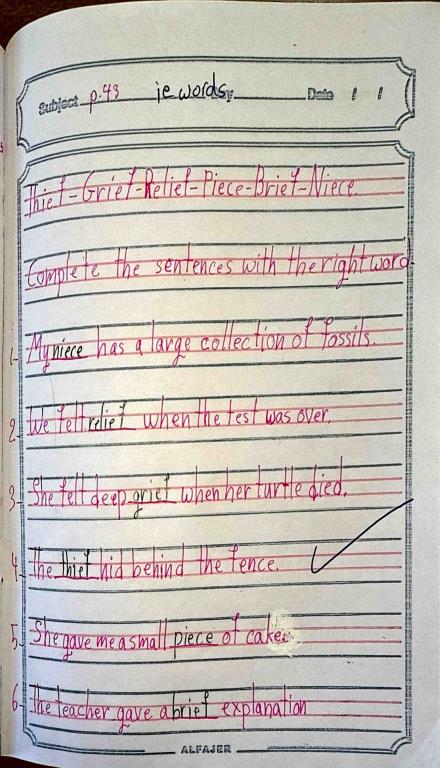 Subject p.43 ie words, Date / /
Thief-Grief-Relief-Piece-Brief-Niece.
Complete the sentences with the right word
1- My niece has a large collection of fossils.
2- We felt relief when the test was over.
3- She felt deep grief when her turtle died.
4- The thief hid behind the fence.
5- She gave me a small piece of cake.
6- The teacher gave a brief explanation
ALFAJER